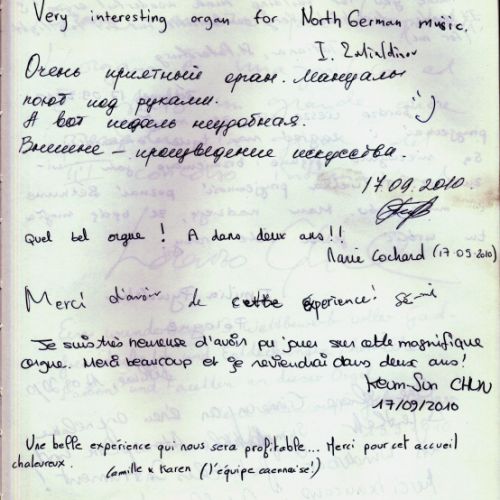 Very interesting organ for North German music.
I.
Очень приятный орган. Мануалы
поют под руками.
А вот педаль неудобная.
Внешне – произведение искусства.
17.09.2010.
Quel bel orgue ! A dans deux ans !!
Marie Cochard (17 09 2010)
Merci d'avoir de cette expérience !
Je suis très heureuse d'avoir pu jouer sur cette magnifique
orgue. Merci beaucoup et je reviendrai dans deux ans !
Keum-Sun CHUN
17/09/2010
Une belle expérience qui nous sera profitable... Merci pour cet accueil
chaleureux.
Camille x Karen (l'équipe caennaise !)